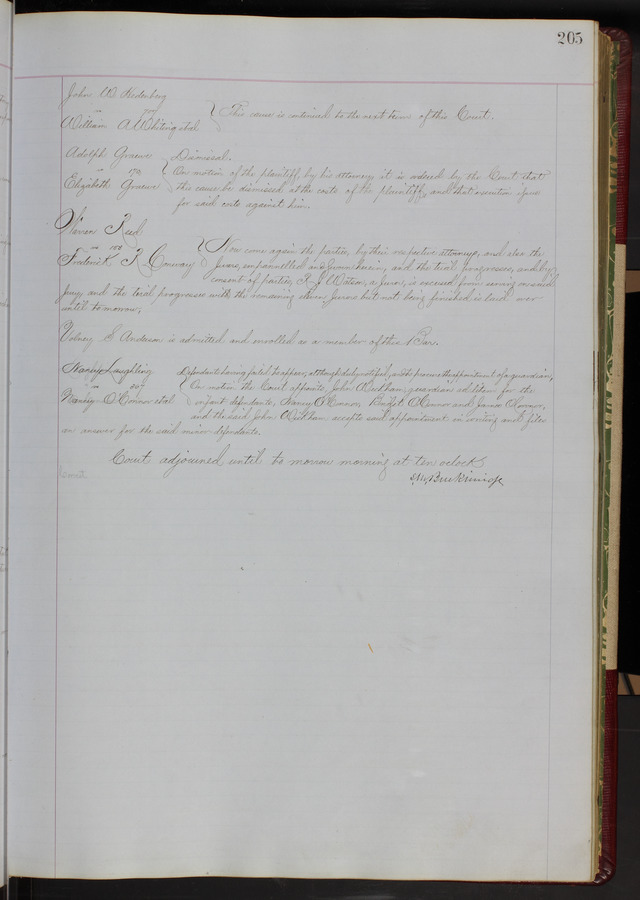 205
John W. Redenberg
vs
William A. Whiting et al } This cause is continued to the next term of this Court.
Adolph Graeve } Dismissal.
vs 172 On motion of the plaintiff, by his attorney it is ordered by the Court that
Elizabeth Graeve this cause be dismissed at the costs of the plaintiff, and that execution issue
for said costs against him.
Reed
vs
Frederick R. Conway } Now come again the parties, by their respective attorneys, and also the
Jurors, empannelled and sworn herein, and the trial progresses, and by
consent of parties, R. J. Watson, a Juror, is excused from serving on said
Jury and the trial progresses with the remaining eleven Jurors but not being finished is laid over
until tomorrow.
Volney S. Anderson is admitted and enrolled as a member of this Bar.
Nancy Laughling Defendants having failed to appear, although duly notified, and to procure the appointment of a guardian,
vs 207 On motion the Court appoints John Wickham, guardian ad litem for the
Nancy O'Connor et al infant defendants, Nancy O'Connor, O'Connor and James O'Connor,
and the said John Wickham accepts said appointment in writing and files
an answer for the said minor defendants.
Court adjourned until to morrow morning at ten oclock
S. M. Breckinridge